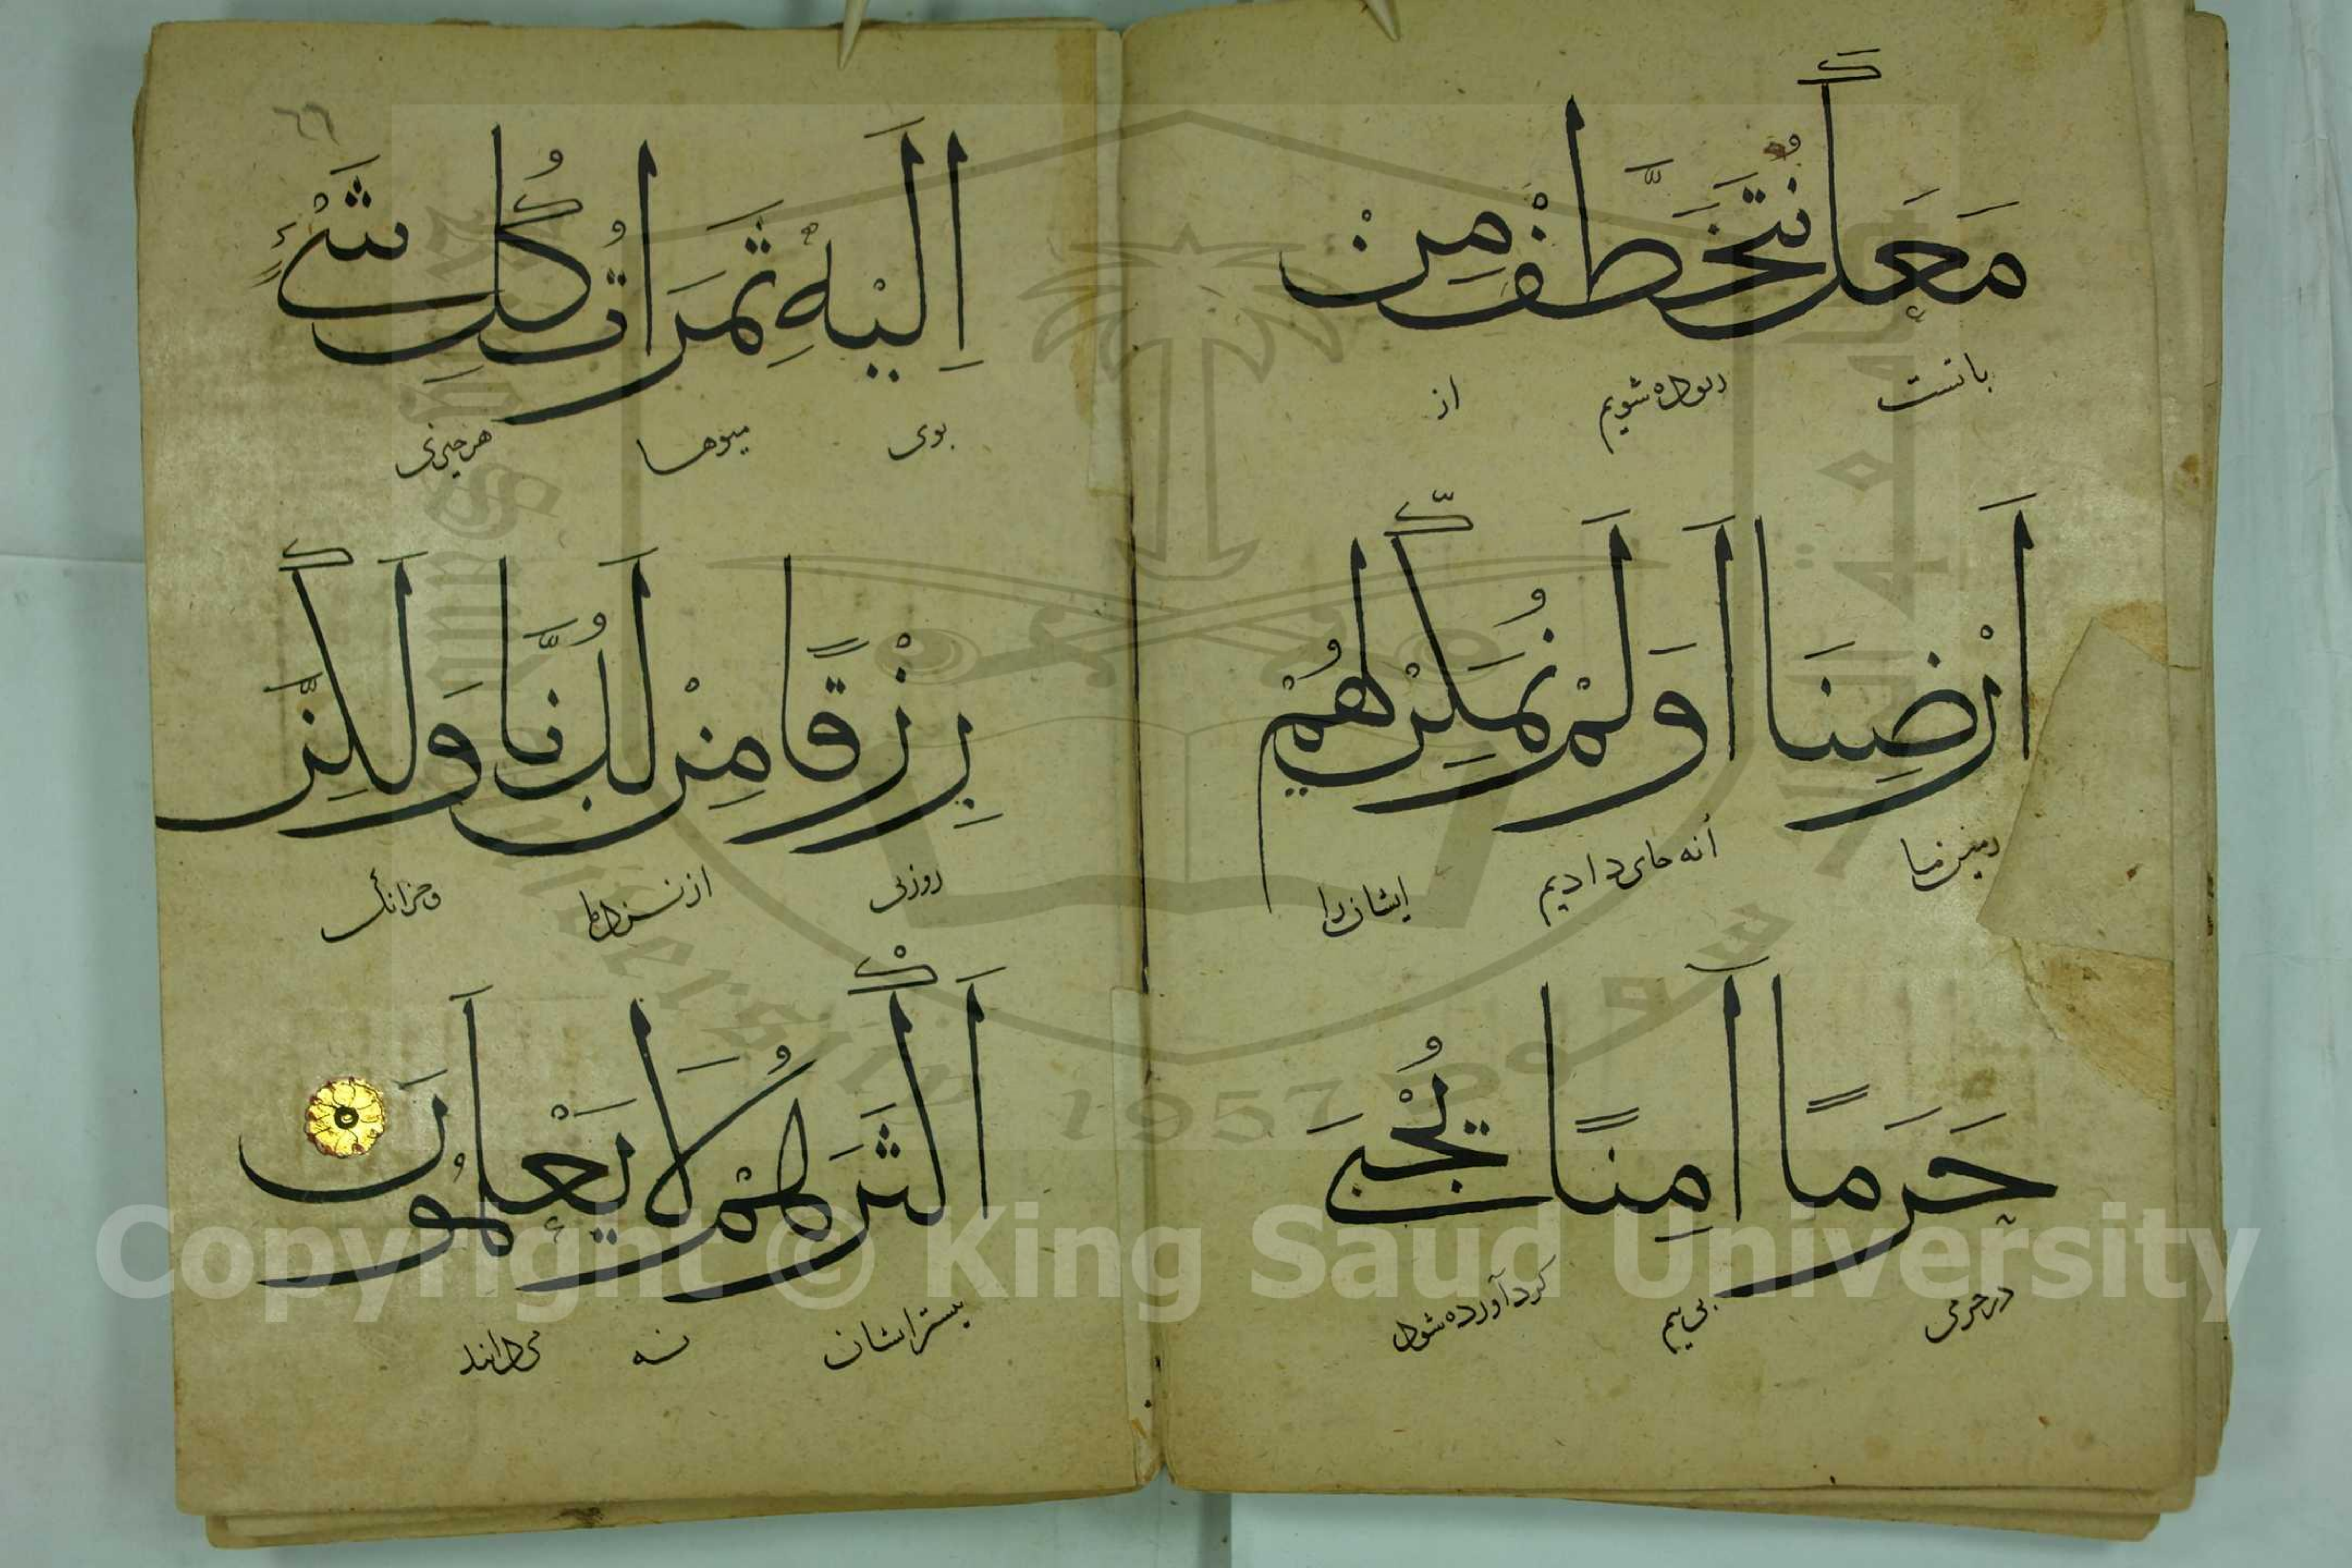 مَعَكَ نُتَخَطَّفْ مِنْ
با تست ربوده شویم از
اَرْضِنَا اَوَلَمْ نُمَكِّنْ لَهُمْ
زمین ما انه جای دادیم ایشان را
حَرَمًا آمِنًا يُجْبَى
در حرمی بی بیم کرد آورده شود
٦٦
اِلَيْهِ ثَمَرَاتُ كُلِّ شَيْءٍ
بوی میوها هر چیزی
رِزْقًا مِنْ لَدُنَّا وَلَكِنَّ
روزی از نزد ما وجزانک
اَكْثَرَهُمْ لَا يَعْلَمُونَ
بیشتر ایشان نه می دانند
Copyright © King Saud University
1957